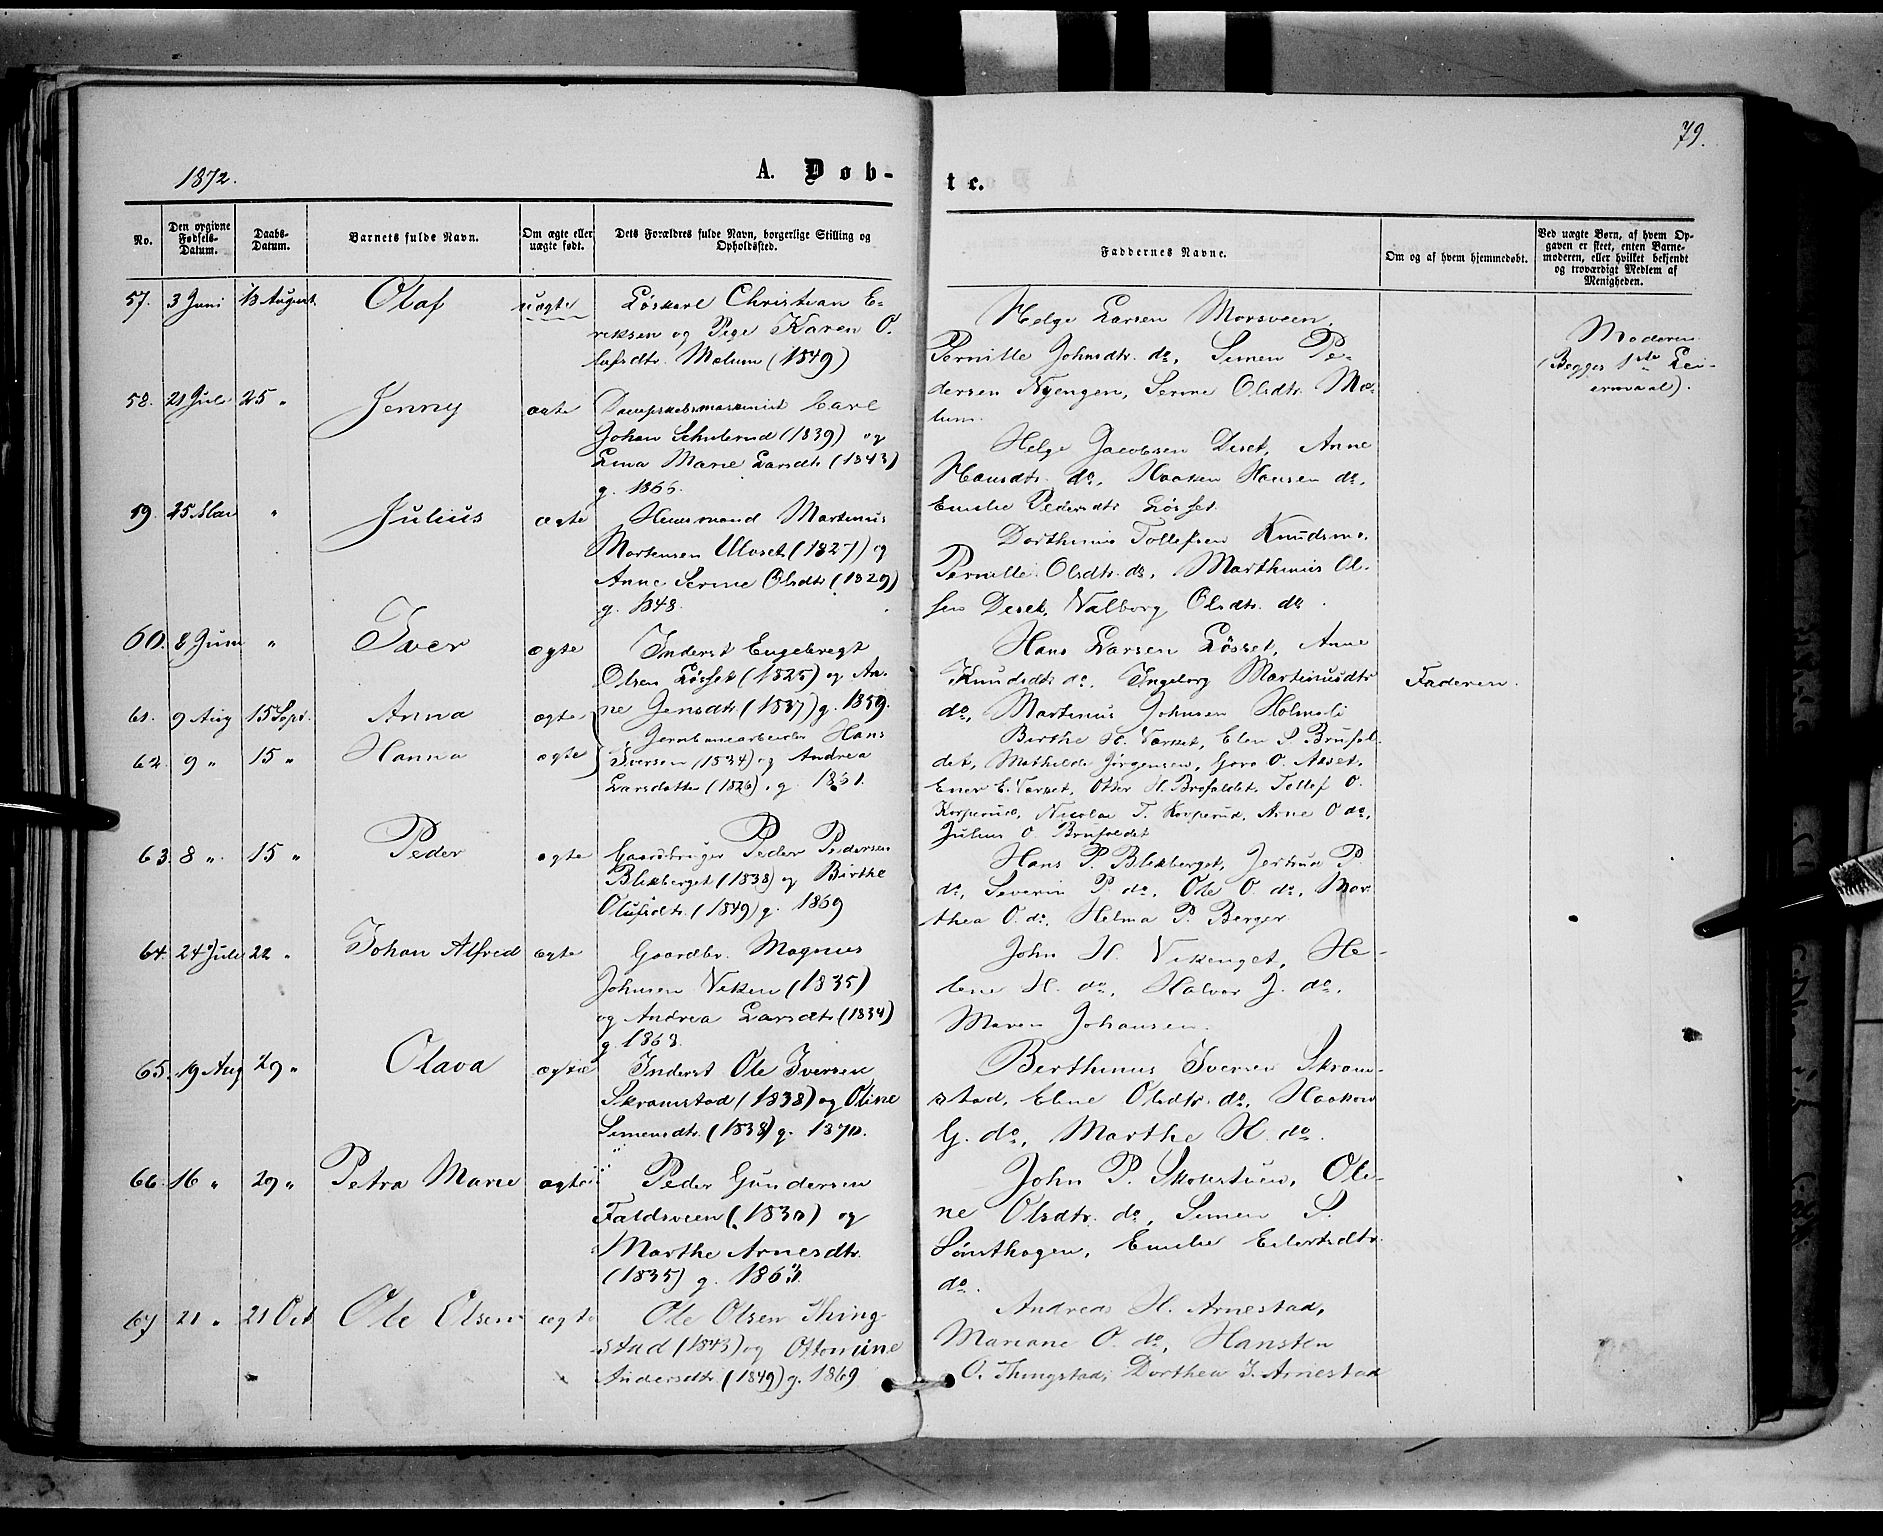 79.
1872.
A. Døb-
te.
No.
Den opgivne Fødsels-Datum.
Daabs-Datum.
Barnets fulde Navn.
Om ægte eller uægte født.
Dets Forældres fulde Navn, borgerlige Stilling og Opholdssted.
Faddernes Navne.
Om og af hvem hjemmedøbt.
Ved uægte Børn, af hvem Opgaven er skeet, enten Barnemoderen, eller hvilket bekjendt og troværdigt Medlem af Menigheden.
57. 3 Juni 18 August. Olaf uægte
Løskarl Christian E-
riksen og Pige Karen O-
lafsdtr. Mælum (1849)
Helge Larsen Morsveen,
Pernille Johnsdtr. do, Simen Pe-
dersen Nyengen, Serine Olsdtr. Mæ-
lum.
Moderen
(Begges 1ste Lei-
ermaal).
58. 21 Juli 25 " Jenny ægte
Dampskibsmaskinist Carl
Johan Schulerud (1839) og
Lina Marie Larsdtr (1843)
g. 1866.
Helge Jacobsen Deset, Anne
Hansdtr. do, Haaken Hansen do,
Emilie Pedersdtr Løsset.
59. 25 Mai " Julius ægte
Huusmand Martinus
Mortensen Ulvset (1827) og
Anne Serine Olsdtr (1829)
g. 1848.
Dorthinus Tollefsen Knudsmo,
Pernille Olsdtr. do, Marthinus Ol-
sen Deset, Valborg Olsdtr. do.
60. 8 Juni " Iver ægte
Inderst Engebregt
Olsen Løsset (1825) og An-
ne Jensdtr (1837) g. 1859.
Hans Larsen Løsset, Anne
Knudsdtr do, Ingeborg Martinusdtr
do, Martinus Johnsen Holmsli
Faderen.
61. 9 Aug 15 Sept. Anna ægte
62. 9 " 15 " Hanna ægte
Jernbanearbeider Hans
Iversen (1834) og Andrea
Larsdatter (1826), g. 1861.
Birthe H. Varset, Elen P. Brufol-
det, Mathilde Jørgensen, Goro O. Aaset,
Ener E. Varset, Otter H. Brofoldet, Tollef O.
Korperud, Nicolai T. Korperud, Arne O do,
Julius O. Brufoldet
63. 8 " 15 " Peder ægte
Gaardbruger Peder Pedersen
Blekberget (1838) og Birthe
Olufsdtr. (1849) g. 1869
Hans P. Blekberget, Jertrud P.
do, Severin P. do, Ole O. do, Mar-
thea O. do, Helma P. Berger
64. 24 Juli 22 " Johan Alfred ægte
Gaardbr. Magnus
Johnsen Viken (1835)
og Andrea Larsdtr (1834)
g. 1863.
John H. Vikenget, He-
lene H. do, Halvor J. do,
Maren Johansen.
65. 19 Aug 29 " Olava ægte
Inderst Ole Iversen
Skramstad (1838) og Oline
Simensdtr. (1838) g. 1870.
Berthinus Iversen Skram-
stad, Eline Olsdtr. do, Haaken
G. do, Marthe H. do.
66. 16 " 29 " Petra Marie ægte
" Peder Gundersen
Faldsveen (1830) og
Marthe Arnesdtr.
(1835) g. 1863.
John P. Skolestuen, Oli-
ne Olsdtr. do, Simen S.
Sønsthagen, Emilie Eilertsdtr.
do.
67 21 " 21 Oct Ole Olsen ægte
Ole Olsen Thing-
stad (1843) og Ottomine
Andersdtr. (1849) g. 1869
Andreas H. Arnestad,
Mariane O. do, Hansten
O. Thingstad, Dorthea I. Arnestad